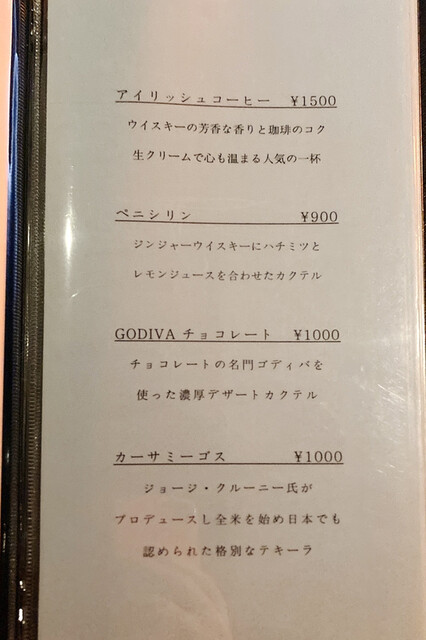 アイリッシュコーヒー ¥1500
ウイスキーの芳香な香りと珈琲のコク
生クリームで心も温まる人気の一杯
ペニシリン ¥900
ジンジャーウイスキーにハチミツと
レモンジュースを合わせたカクテル
GODIVA チョコレート ¥1000
チョコレートの名門ゴディバを
使った濃厚デザートカクテル
カーサミーゴス ¥1000
ジョージ・クルーニー氏が
プロデュースし全米を始め日本でも
認められた格別なテキーラ